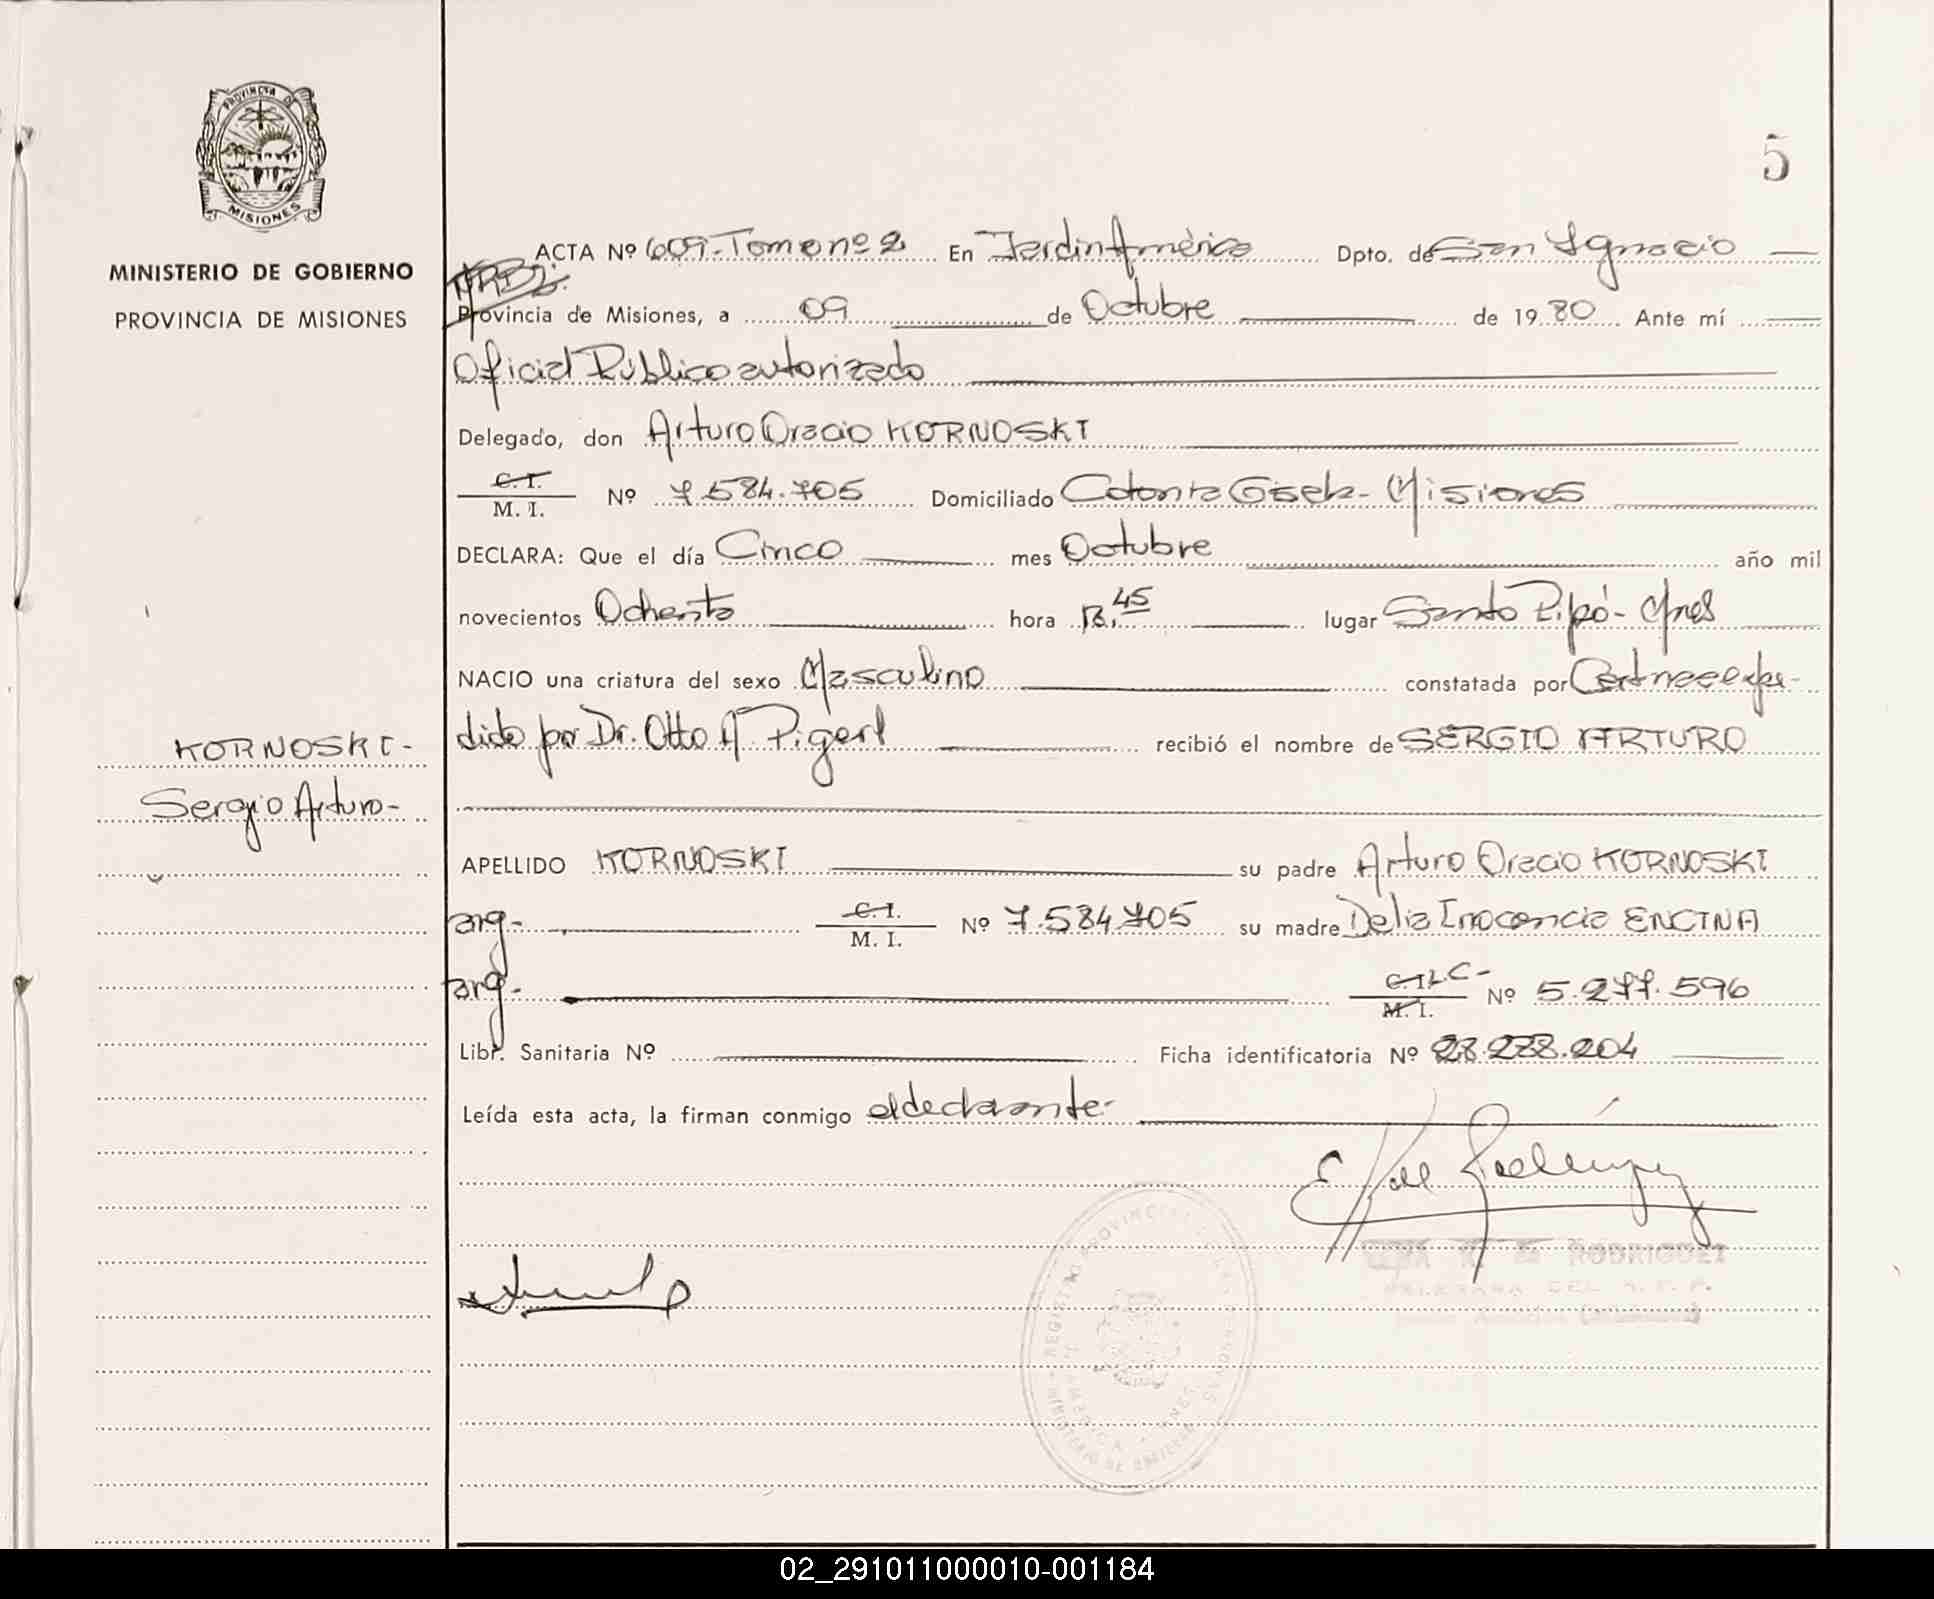 PROVINCIA DE
MISIONES
MINISTERIO DE GOBIERNO
PROVINCIA DE MISIONES
KORNOSKI-
Sergio Arturo-
5
ACTA Nº 609-Tomo nº 2 En Jardin América Dpto. de San Ignacio
Provincia de Misiones, a 09 de Octubre de 1980 Ante mí
Oficial Público autorizado
Delegado, don Arturo Oracio KORNOSKI
C. I.
M. I. Nº 7.584.705 Domiciliado Colonia Gisela- Misiones
DECLARA: Que el día Cinco mes Octubre año mil
novecientos Ochenta hora 45 lugar Santo Pipó- Mnes
NACIO una criatura del sexo Masculino constatada por Cert nac expe-
dido por Dr. Otto A Pigerl recibió el nombre de SERGIO ARTURO
APELLIDO KORNOSKI su padre Arturo Oracio KORNOSKI
arg- C. I.
M. I. Nº 7.584.705 su madre Delia Inocencia ENCINA
arg- C. I. L C-
M. I. Nº 5.277.596
Libr. Sanitaria Nº Ficha identificatoria Nº 28.278.204
Leída esta acta, la firman conmigo el declarante-
RODRIGUEZ
02_291011000010-001184